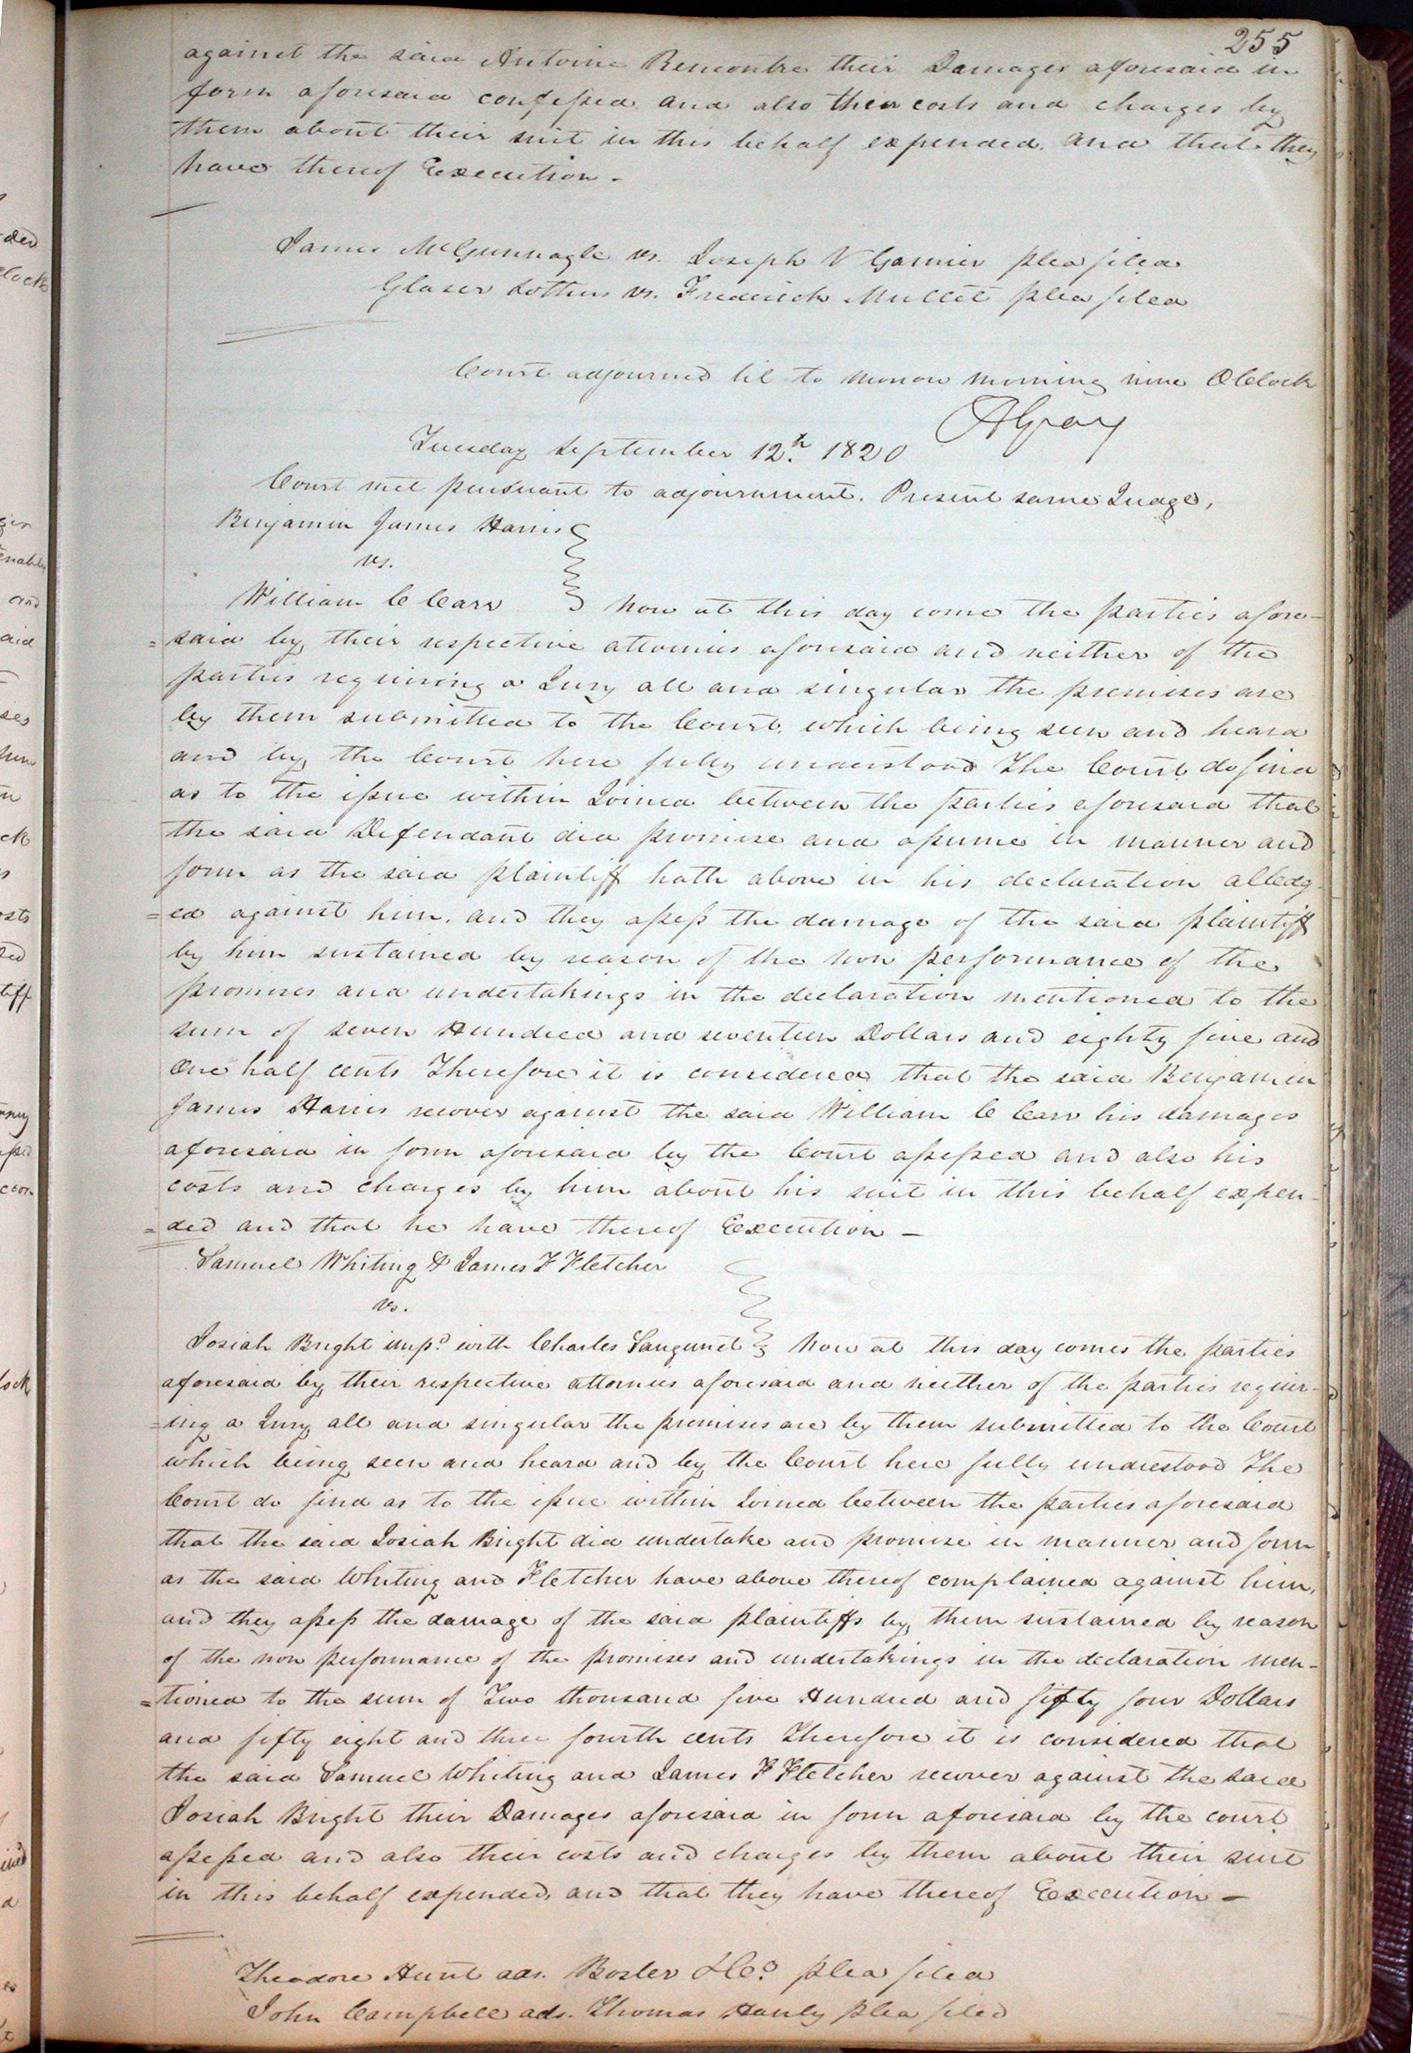 255
against the said Antoine Rencontre their Damages aforesaid in
form aforesaid confessed and also their costs and charges by
them about their suit in this behalf expended. and that they
have thereof Execution -
James McGunnagle vs. Joseph V Garnier plea filed
Glaser Lothers vs. Frederick Mullet plea filed
Court adjourned til to morrow morning nine OClock
AGray
Tuesday September 12th. 1820
Court met pursuant to adjournment. Present same Judge,
Benjamin James Harris
vs.
William C Carr Now at this day come the parties afore-
=said by their respective attornies aforesaid and neither of the
parties requiring a Jury all and singular the premises are
by them submitted to the Court. which being seen and heard
and by the Court here fully understood The Court do find
as to the issue within Joined between the parties aforesaid that
the said Defendant did promise and assume in manner and
form as the said plaintiff hath above in his declaration alledg-
=ed against him. and they assess the damage of the said plaintiff
by him sustained by reason of the non performance of the
promises and undertakings in the declaration mentioned to the
sum of seven Hundred and seventeen Dollars and eighty five and
One half cents Therefore it is considered that the said Benjamin
James Harris recover against the said William C Carr his damages
aforesaid in form aforesaid by the Court assessed and also his
costs and charges by him about his suit in this behalf expen-
=ded and that he have thereof Execution -
Samuel Whiting & James F Fletcher
vs.
Josiah Bright impd. with Charles Sanguinet Now at this day comes the parties
aforesaid by their respective attornies aforesaid and neither of the parties requir-
=ing a Jury all and singular the premises are by them submitted to the Court
which being seen and heard and by the Court here fully understood The
Court do find as to the issue within Joined between the parties aforesaid
that the said Josiah Bright did undertake and promise in manner and form
as the said Whiting and Fletcher have above thereof complained against him.
and they assess the damage of the said plaintiffs by them sustained by reason
of the non performance of the promises and undertakings in the declaration men-
=tioned to the sum of Two thousand five Hundred and fifty four Dollars
and fifty eight and three fourth cents Therefore it is considered that
the said Samuel Whiting and James F Fletcher recover against the said
Josiah Bright their Damages aforesaid in form aforesaid by the court
assessed and also their costs and charges by them about their suit
in this behalf expended and that they have thereof Execution -
Theodore Hunt ads. Bosler & Co. plea filed
John Campbell ads. Thomas Hanly plea filed